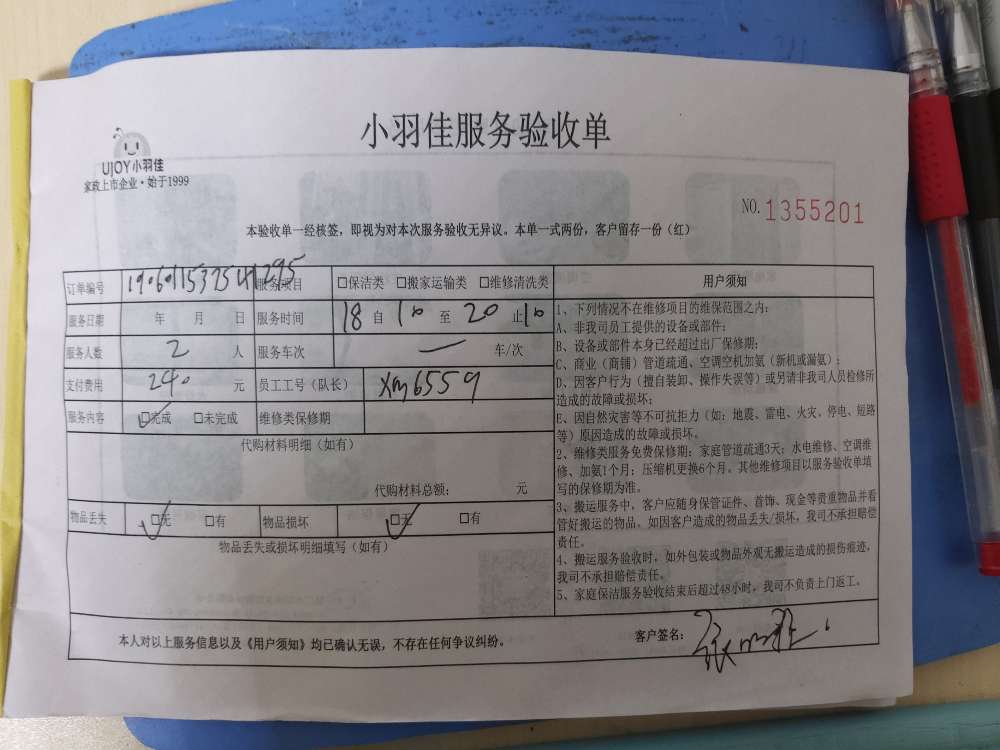 小羽佳服务验收单
UJOY小羽佳
家政上市企业·始于1999
NO. 1355201
本验收单一经核签，即视为对本次服务验收无异议。本单一式两份，客户留存一份（红）
订单编号 服务项目 □保洁类 □搬家运输类 □维修清洗类
服务日期 年 月 日 服务时间 18 自 10 至 20 止 10
服务人数 2 人 服务车次 一 车/次
支付费用 240 元 员工工号（队长） xm6559
服务内容 □完成 □未完成 维修类保修期
代购材料明细（如有）
代购材料总额： 元
物品丢失 □无 □有 物品损坏 □无 □有
物品丢失或损坏明细填写（如有）
用户须知
1、下列情况不在维修项目的维保范围之内：
A、非我司员工提供的设备或部件；
B、设备或部件本身已经超过出厂保修期；
C、商业（商铺）管道疏通、空调空机加氨（新机或漏氨）；
D、因客户行为（擅自装卸、操作失误等）或另请非我司人员检修所
造成的故障或损坏；
E、因自然灾害等不可抗拒力（如：地震、雷电、火灾、停电、短路
等）原因造成的故障或损坏。
2、维修类服务免费保修期：家庭管道疏通3天；水电维修、空调维
修、加氨1个月；压缩机更换6个月。其他维修项目以服务验收单填
写的保修期为准。
3、搬运服务中，客户应随身保管证件、首饰、现金等贵重物品并看
管好搬运的物品。如因客户造成的物品丢失/损坏，我司不承担赔偿
责任。
4、搬运服务验收时，如外包装或物品外观无搬运造成的损伤痕迹，
我司不承担赔偿责任。
5、家庭保洁服务验收结束后超过48小时，我司不负责上门返工。
本人对以上服务信息以及《用户须知》均已确认无误，不存在任何争议纠纷。
客户签名：